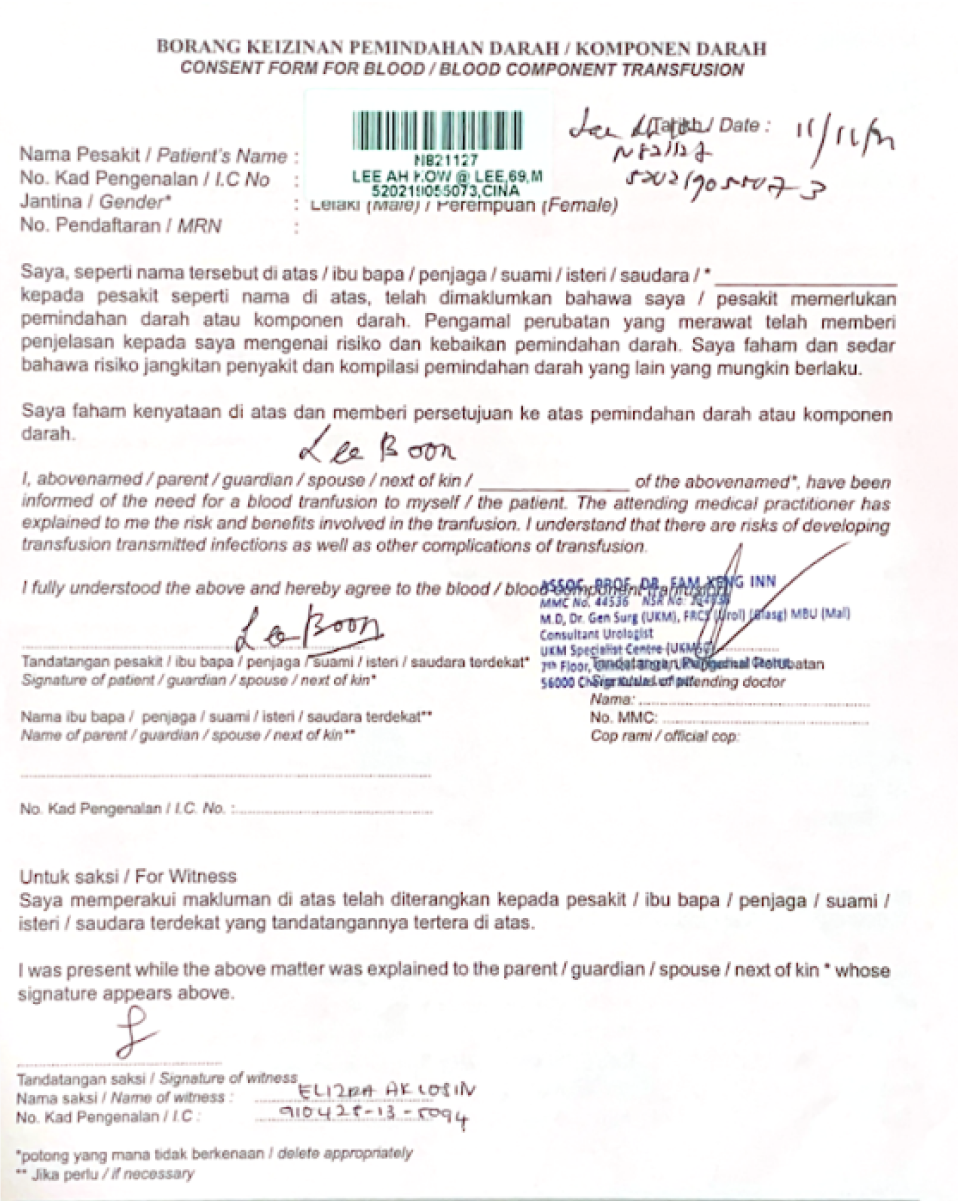 BORANG KEIZINAN PEMINDAHAN DARAH / KOMPONEN DARAH
CONSENT FORM FOR BLOOD / BLOOD COMPONENT TRANSFUSION
Lee
/ Date : 11/11/21
Nama Pesakit / Patient's Name :
NB21127
No. Kad Pengenalan / I.C No :
LEE AH KOW @ LEE,69,M
520219055073,CINA
520219055073
Jantina / Gender* : Lelaki (Male) / Perempuan (Female)
No. Pendaftaran / MRN :
Saya, seperti nama tersebut di atas / ibu bapa / penjaga / suami / isteri / saudara / *
kepada pesakit seperti nama di atas, telah dimaklumkan bahawa saya / pesakit memerlukan
pemindahan darah atau komponen darah. Pengamal perubatan yang merawat telah memberi
penjelasan kepada saya mengenai risiko dan kebaikan pemindahan darah. Saya faham dan sedar
bahawa risiko jangkitan penyakit dan kompilasi pemindahan darah yang lain yang mungkin berlaku.
Saya faham kenyataan di atas dan memberi persetujuan ke atas pemindahan darah atau komponen
darah.
Lee Boon
I, abovenamed / parent / guardian / spouse / next of kin / of the abovenamed*, have been
informed of the need for a blood tranfusion to myself / the patient. The attending medical practitioner has
explained to me the risk and benefits involved in the tranfusion. I understand that there are risks of developing
transfusion transmitted infections as well as other complications of transfusion.
I fully understood the above and hereby agree to the blood / blood component tranfusion.
ASSOC. PROF. DR. FAM XENG INN
MMC No. 44536 NSR No:
M.D, Dr. Gen Surg (UKM), FRCS (Urol) (Glasg) MBU (Mal)
Consultant Urologist
UKM Specialist Centre
7th Floor,
56000
Lee Boon
Tandatangan pesakit / ibu bapa / penjaga / suami / isteri / saudara terdekat*
Signature of patient / guardian / spouse / next of kin*
Tandatangan Pengamal Perubatan
Signature of attending doctor
Nama:
No. MMC:
Cop rami / official cop:
Nama ibu bapa / penjaga / suami / isteri / saudara terdekat**
Name of parent / guardian / spouse / next of kin**
No. Kad Pengenalan / I.C. No. :
Untuk saksi / For Witness
Saya memperakui makluman di atas telah diterangkan kepada pesakit / ibu bapa / penjaga / suami /
isteri / saudara terdekat yang tandatangannya tertera di atas.
I was present while the above matter was explained to the parent / guardian / spouse / next of kin * whose
signature appears above.
Tandatangan saksi / Signature of witness
Nama saksi / Name of witness : ELIZRA AK LOSIN
No. Kad Pengenalan / I.C : 910428-13-5094
*potong yang mana tidak berkenaan / delete appropriately
** Jika perlu / if necessary